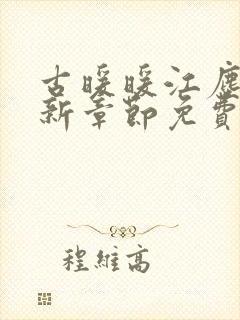 古暖暖江塵
新章節免費
程維高